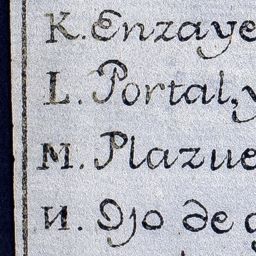 K. Enzaye
L. Portal, y
M. Plazue
N. Ojo de g